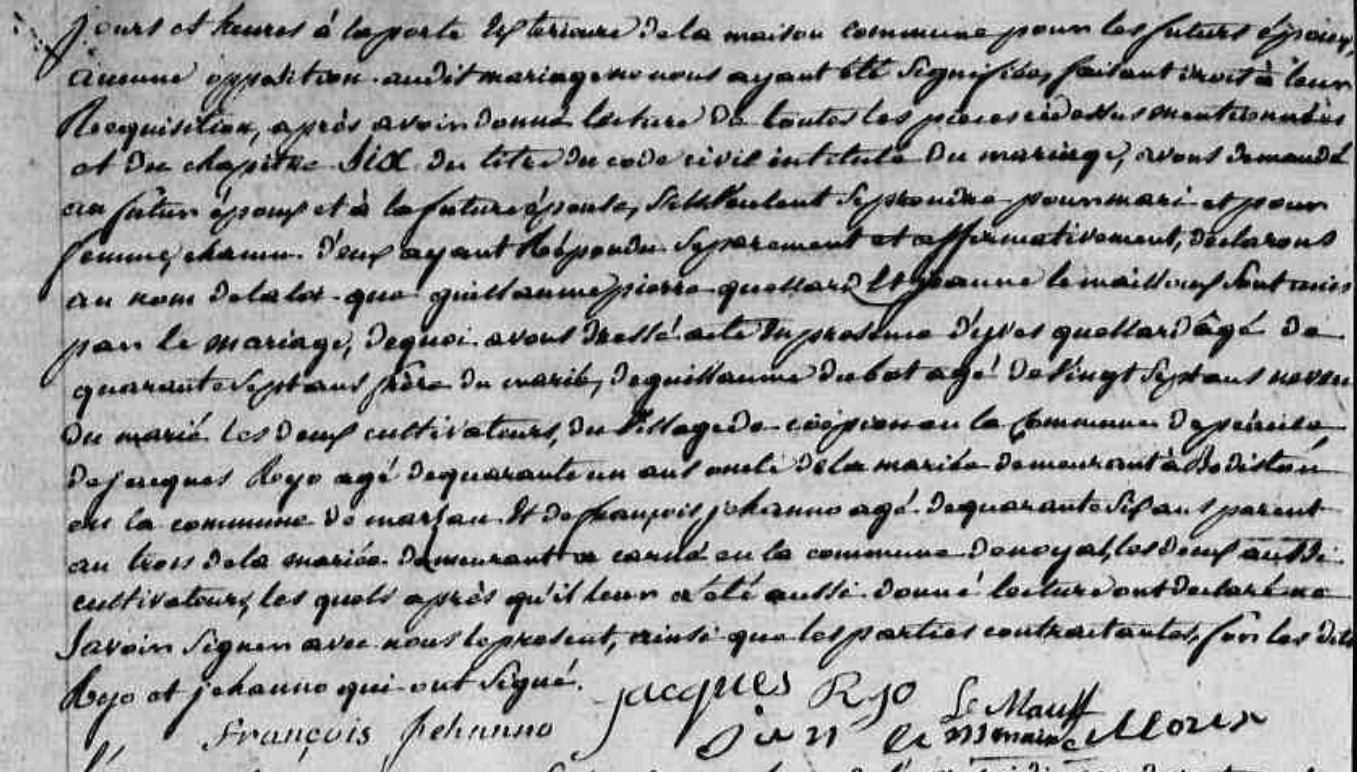 jours et heures à la porte Extérieure de la maison commune pour les futurs époux,
aucune opposition audit mariage ne nous ayant été signifiée, faisant droit à leur
Requisition, après avoir donné lecture de toutes les pièces cidessus mentionnées
et du chapitre Six du titre du code civil intitulé du mariage, avons demandé
au futur époux et à la future épouse, S'ils Veulent Se prendre pour mari et pour
femme, chacun d'eux ayant Répondu Separement et affirmativement, déclarons
au nom de la loi que guillaume pierre quellard Et jeanne le mailloux Sont unis
par le mariage, de quoi avons dressé acte En presence d'yves quellard âgé de
quarante Sept ans frère du marié, de guillaume dubot agé de Vingt Sept ans neveu
du marié les deux cultivateurs, du Village de en la Commune de
de jacques Ryo agé de quarante un ans oncle de la mariée demeurant à Bodistan
en la commune de marzan Et de françois jehanno agé de quarante Six ans parent
au trois de la mariée demeurant a carné en la commune de noyal, les deux aussi
cultivateurs, les quels après qu'il leur a été aussi donné lecture ont declaré ne
Savoir Signer avec nous le present, ainsi que les parties contractantes, fors les dits
Ryo et jehanno qui ont Signé.
jacques Ryo Le Mauff
François Jehanno maire